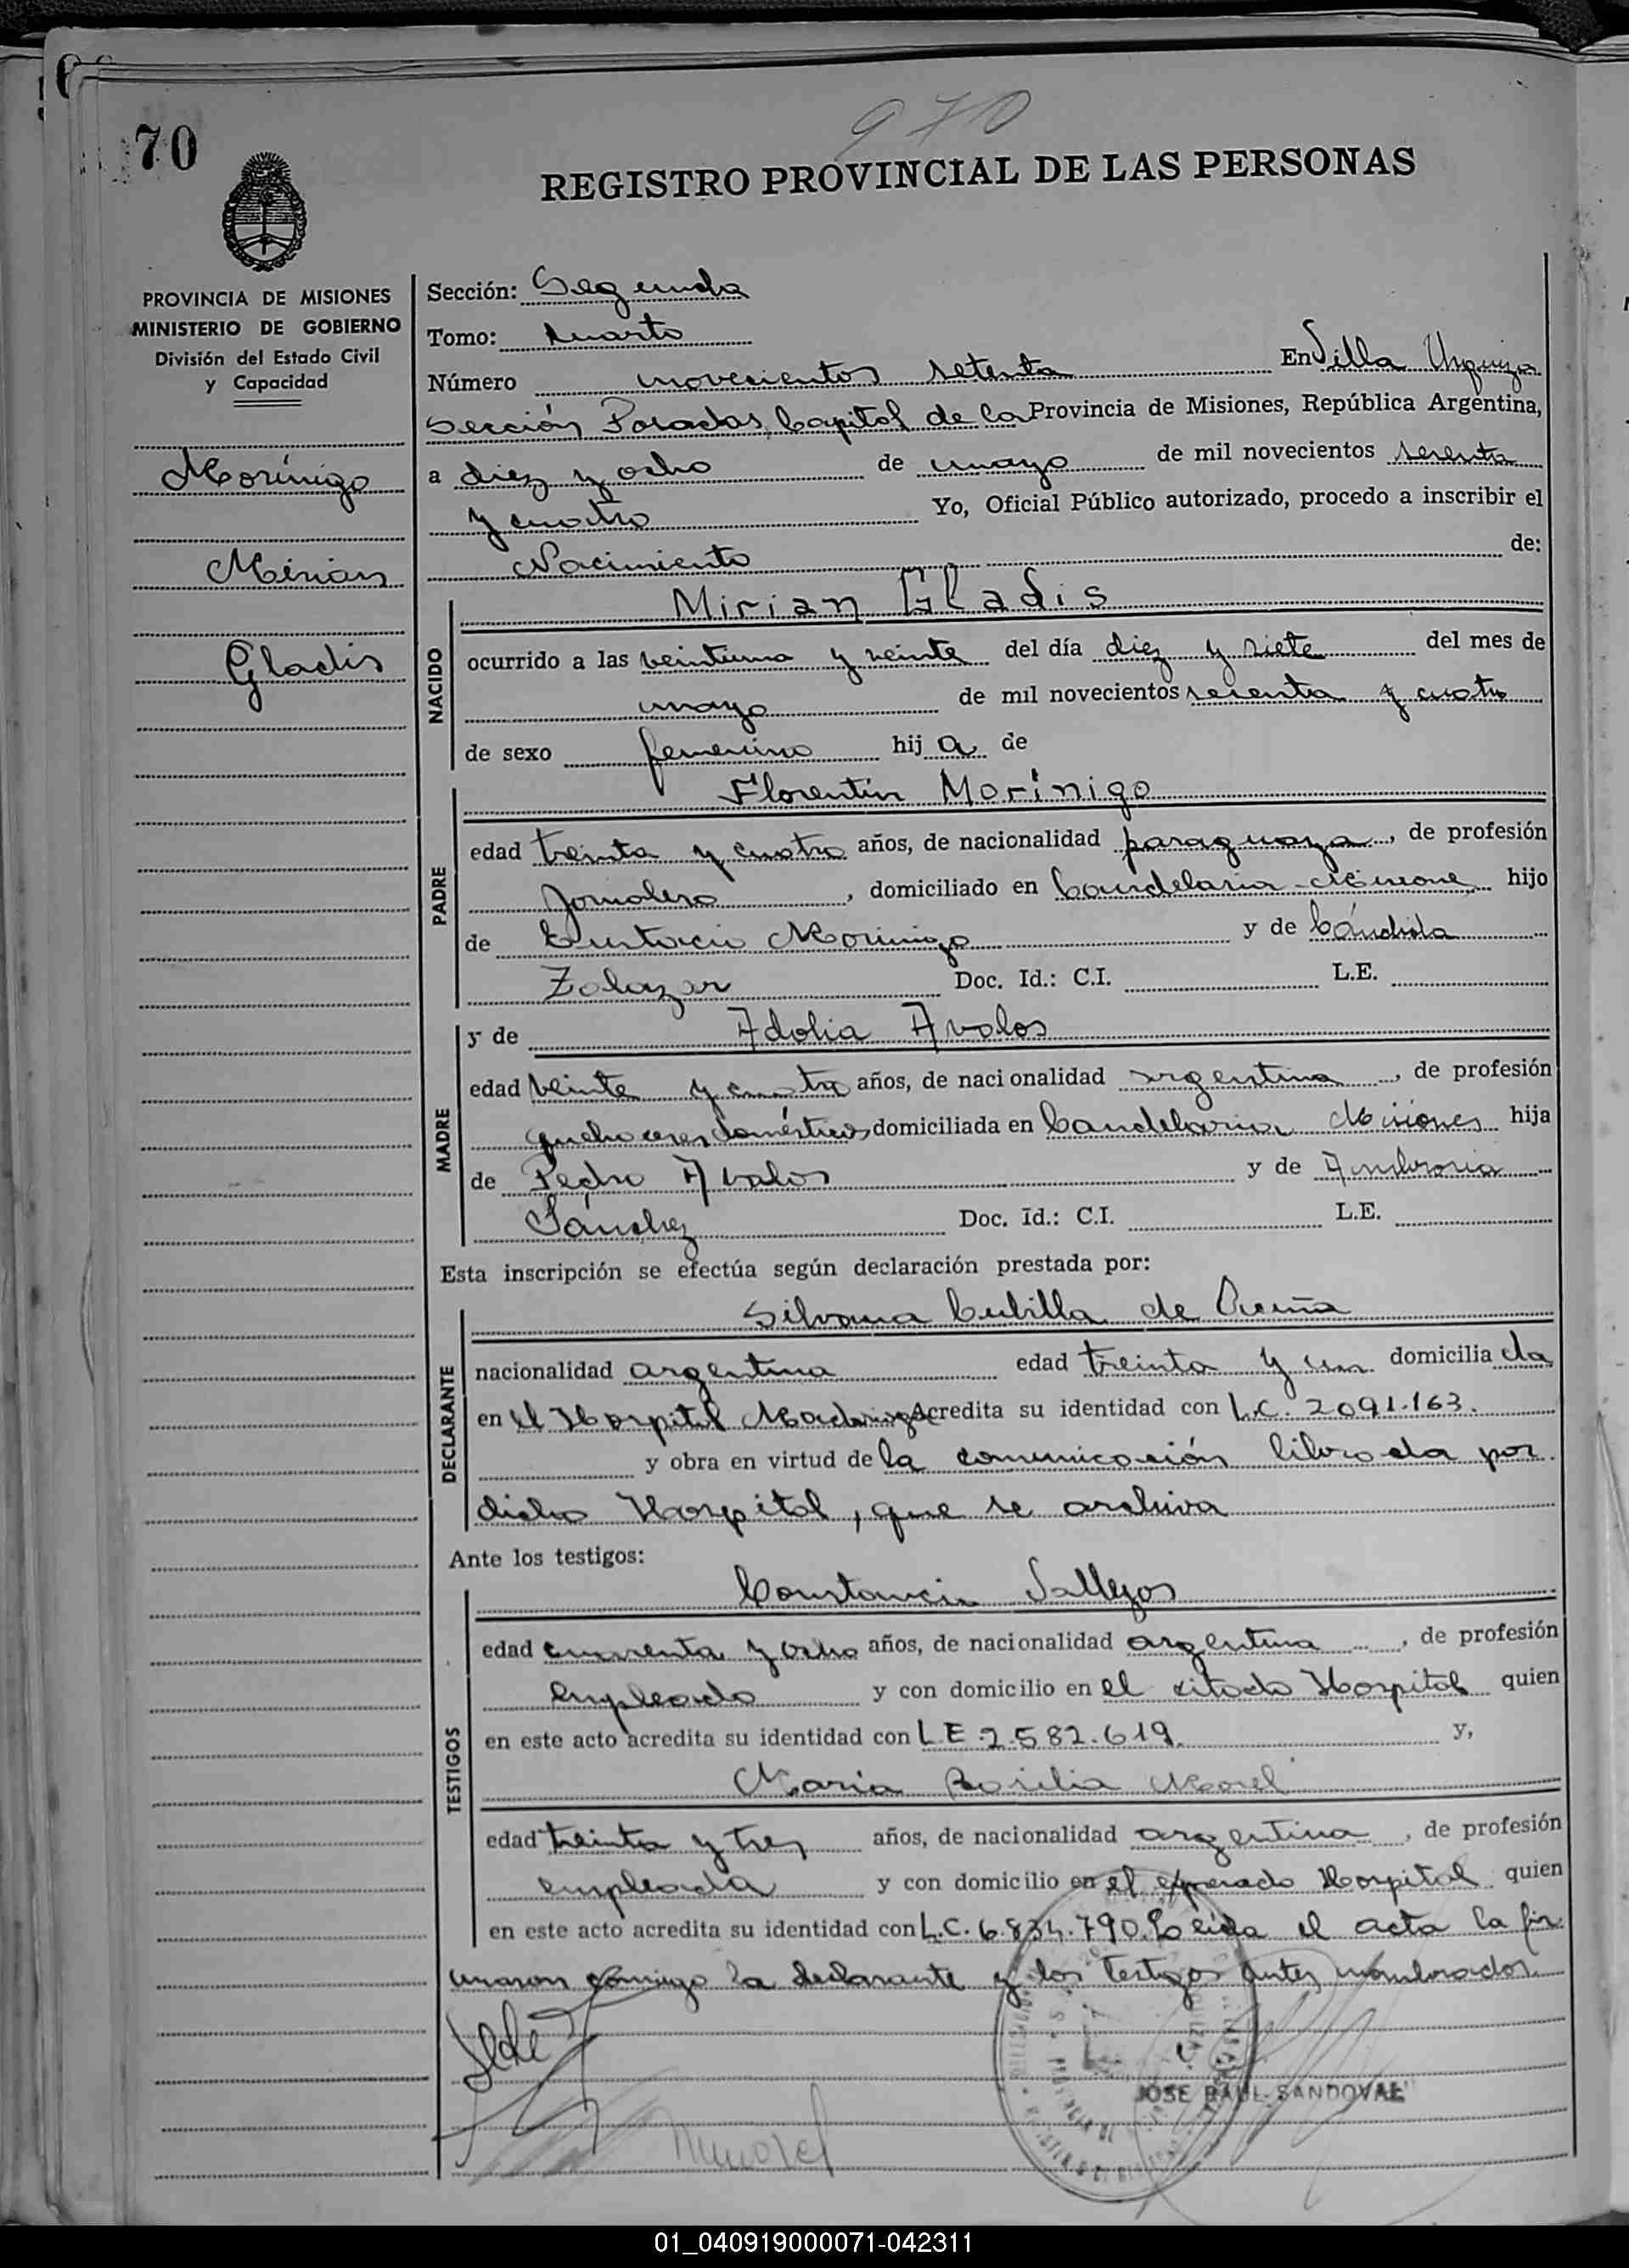 970
70
REGISTRO PROVINCIAL DE LAS PERSONAS
PROVINCIA DE MISIONES
MINISTERIO DE GOBIERNO
División del Estado Civil
y Capacidad
Morínigo
Mirian
Gladis
Sección: Segunda
Tomo: Cuarto
Número novecientos setenta En Villa Urquiza
Sección Posadas, Capital de la Provincia de Misiones, República Argentina,
a diez y ocho de mayo de mil novecientos sesenta
y cuatro Yo, Oficial Público autorizado, procedo a inscribir el
Nacimiento de:
NACIDO
Mirian Gladis
ocurrido a las veintiuna y veinte del día diez y siete del mes de
mayo de mil novecientos sesenta y cuatro
de sexo femenino hij a de
PADRE
Florentin Morínigo
edad treinta y cuatro años, de nacionalidad paraguaya, de profesión
Jornalero, domiciliado en Candelaria - Misiones, hijo
de Eustacio Morinigo y de Cándida
Zalazar Doc. Id.: C.I. L.E.
MADRE
y de Adolia Avalos
edad veinte y cuatro años, de nacionalidad argentina, de profesión
quehaceres domésticos domiciliada en Candelaria Misiones hija
de Pedro Avalos y de Ambrosia
Sánchez Doc. Id.: C.I. L.E.
Esta inscripción se efectúa según declaración prestada por:
DECLARANTE
Silvana Cubilla de Acuña
nacionalidad argentina edad treinta y un domicilia da
en el Hospital Madariaga Acredita su identidad con L.C. 2091.163.
y obra en virtud de la comunicación librada por
dicho Hospital, que se archiva
Ante los testigos:
TESTIGOS
Constancio Vallejos
edad cuarenta y ocho años, de nacionalidad argentina, de profesión
empleado y con domicilio en el citado Hospital quien
en este acto acredita su identidad con L.E 2.582.619. y,
María Rosilia Morel
edad treinta y tres años, de nacionalidad argentina, de profesión
empleada y con domicilio en el expresado Hospital quien
en este acto acredita su identidad con L.C. 6.834.790. Leída el acta la fir
maron conmigo la declarante y los testigos antes nombrados.
JOSE RAUL SANDOVAL
01_040919000071-042311